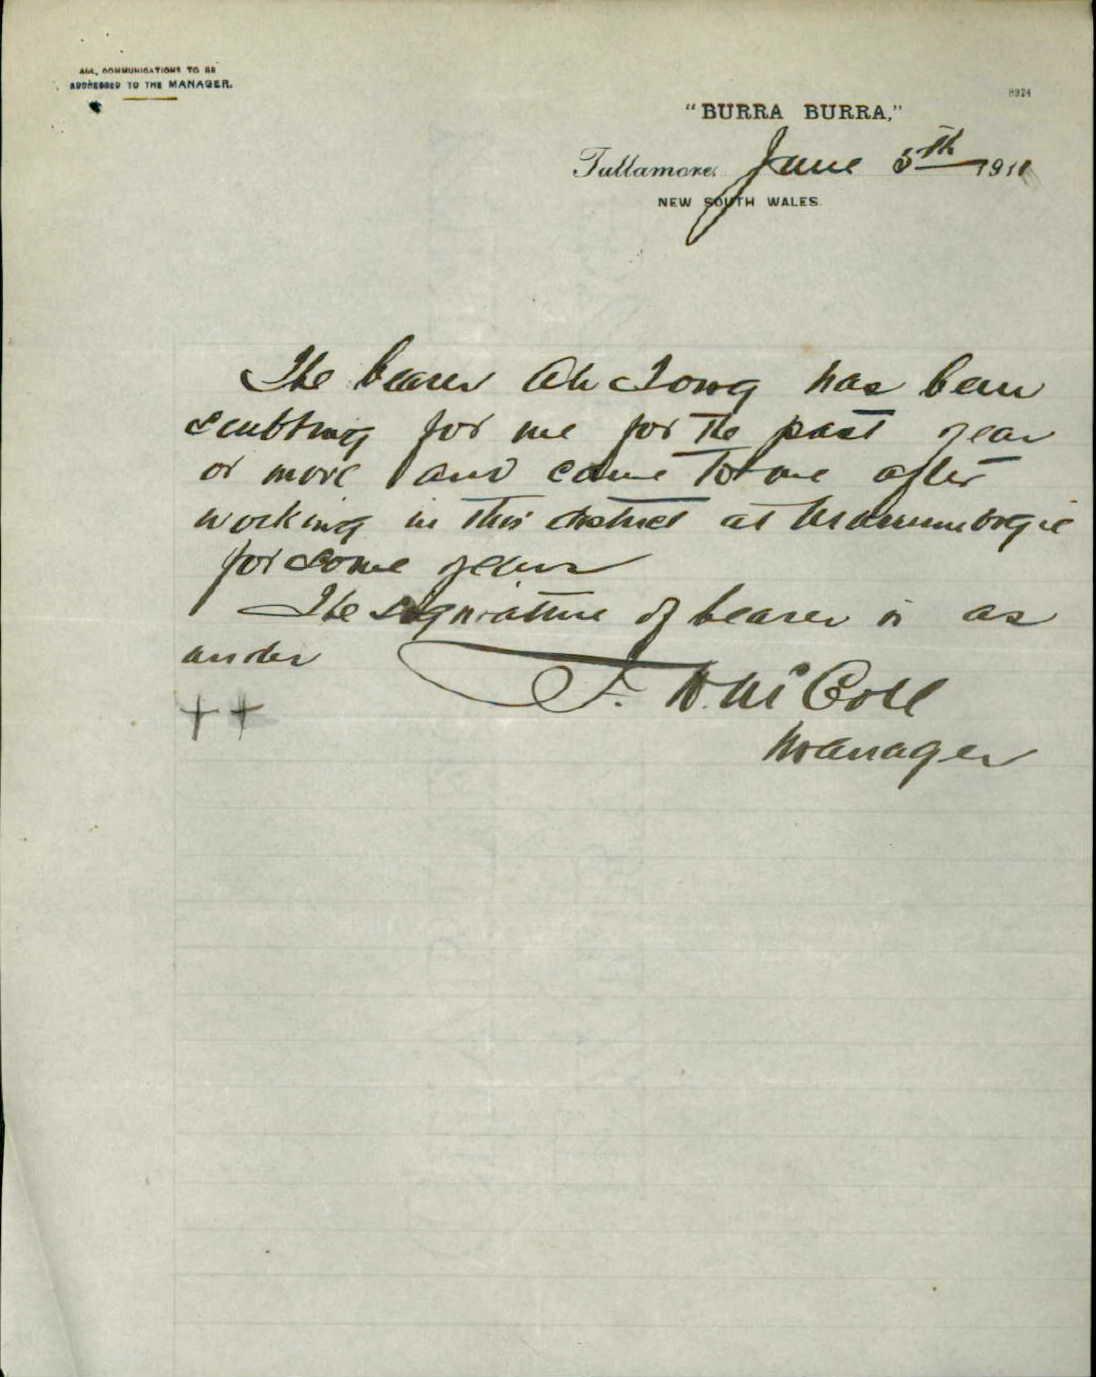 ALL COMMUNICATIONS TO BE
ADDRESSED TO THE MANAGER.
8924
"BURRA BURRA,"
Tullamore, June 5th 1911
NEW SOUTH WALES.
The bearer Ah has been
scubbing for me for the past year
or more and came to me after
working in this district at
for some years
The signature of bearer is as
under
F. McColl
Manager
++